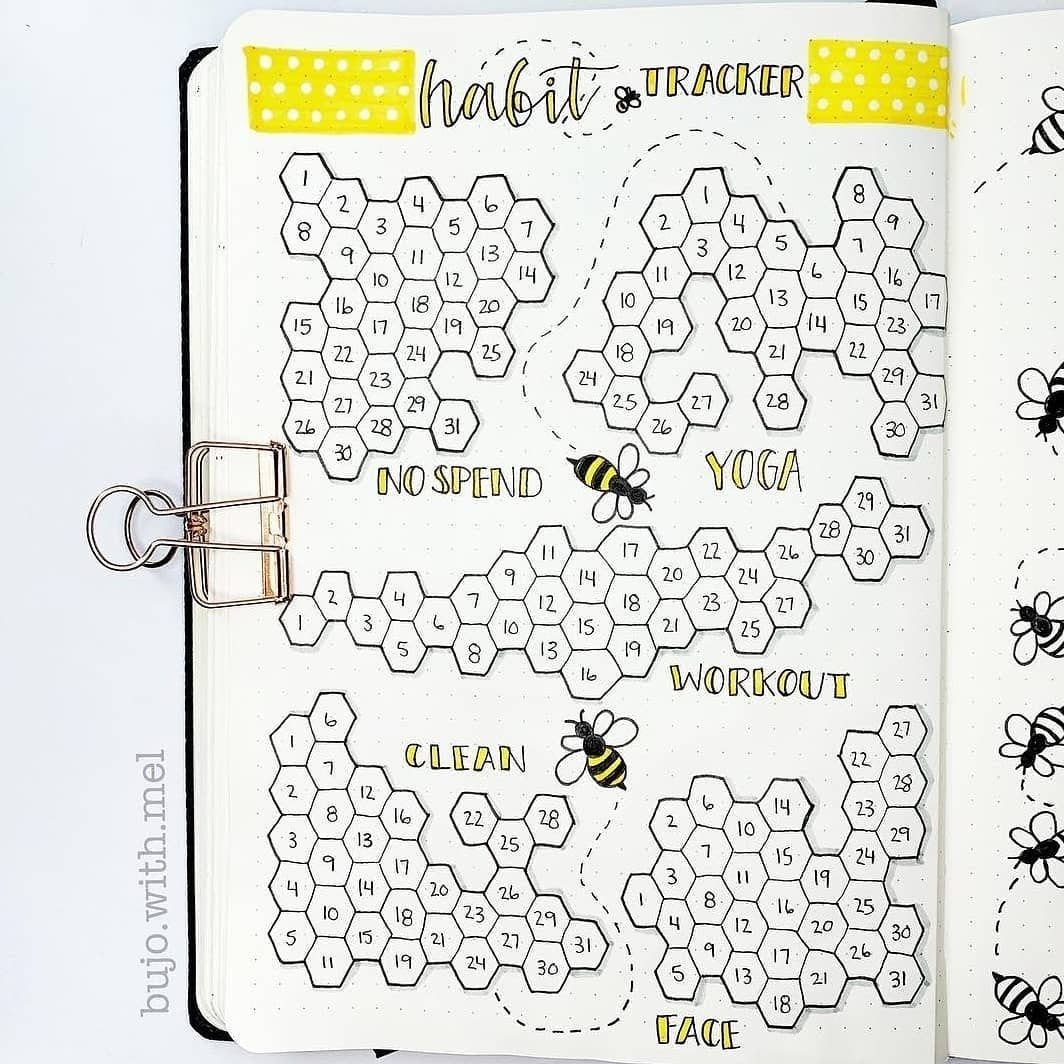 habit TRACKER
1
2 3 4 5 6 7
8 9 10 11 12 13 14
15 16 17 18 19 20
21 22 23 24 25
26 27 28 29 31
30
NO SPEND
1 8
2 3 4 5 7 9
10 11 12 13 6 15 16 17
18 19 20 21 14 22 23
24 25 26 27 28 29 30 31
YOGA
1 2 3 4 5 6 7 8 9 10 11 12 13 14 15 16 17 18 19 20 21 22 23 24 25 26 27 28 29 30 31
WORKOUT
CLEAN
1 2 3 4 5 6 7 8 9 10 11 12 13 14 15 16 17 18 19 20 21 22 23 24 25 26 27 28 29 30 31
1 2 3 4 5 6 7 8 9 10 11 12 13 14 15 16 17 18 19 20 21 22 23 24 25 26 27 28 29 30 31
FACE
bujo.with.mel